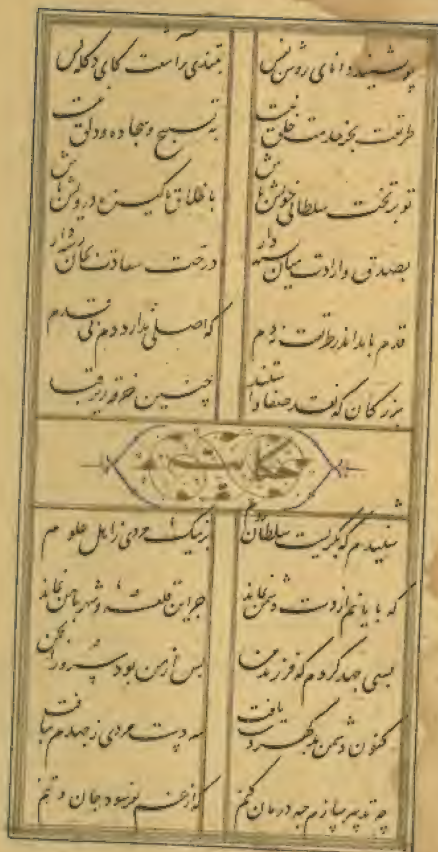 چو بشنید دانای روشن نفس بتندی برآشفت کای تکله بس
طریقت بجز خدمت خلق نیست به تسبیح و سجاده و دلق نیست
تو بر تخت سلطانی خویش باش باخلاق پاکیزه درویش باش
بصدق و ارادت میان بسته دار
قدم باید اندر طریقت نه دم که اصلی ندارد دم بی قدم
بزرگان که نقد صفا داشتند چنین خرقه زیر قبا
حکایت
شنیدم که بگریست سلطان روم بر نیک مردی ز اهل علوم
که پایانم از دست دشمن نماند جز این قلعه و شهر با من نماند
بسی جهد کردم که فرزند من پس از من بود سرور انجمن
کنون دشمن بدگهر دست یافت سر دست مردی ز جهدم بتافت
چه تدبیر سازم چه درمان کنم که از غم بفرسود جان و تنم